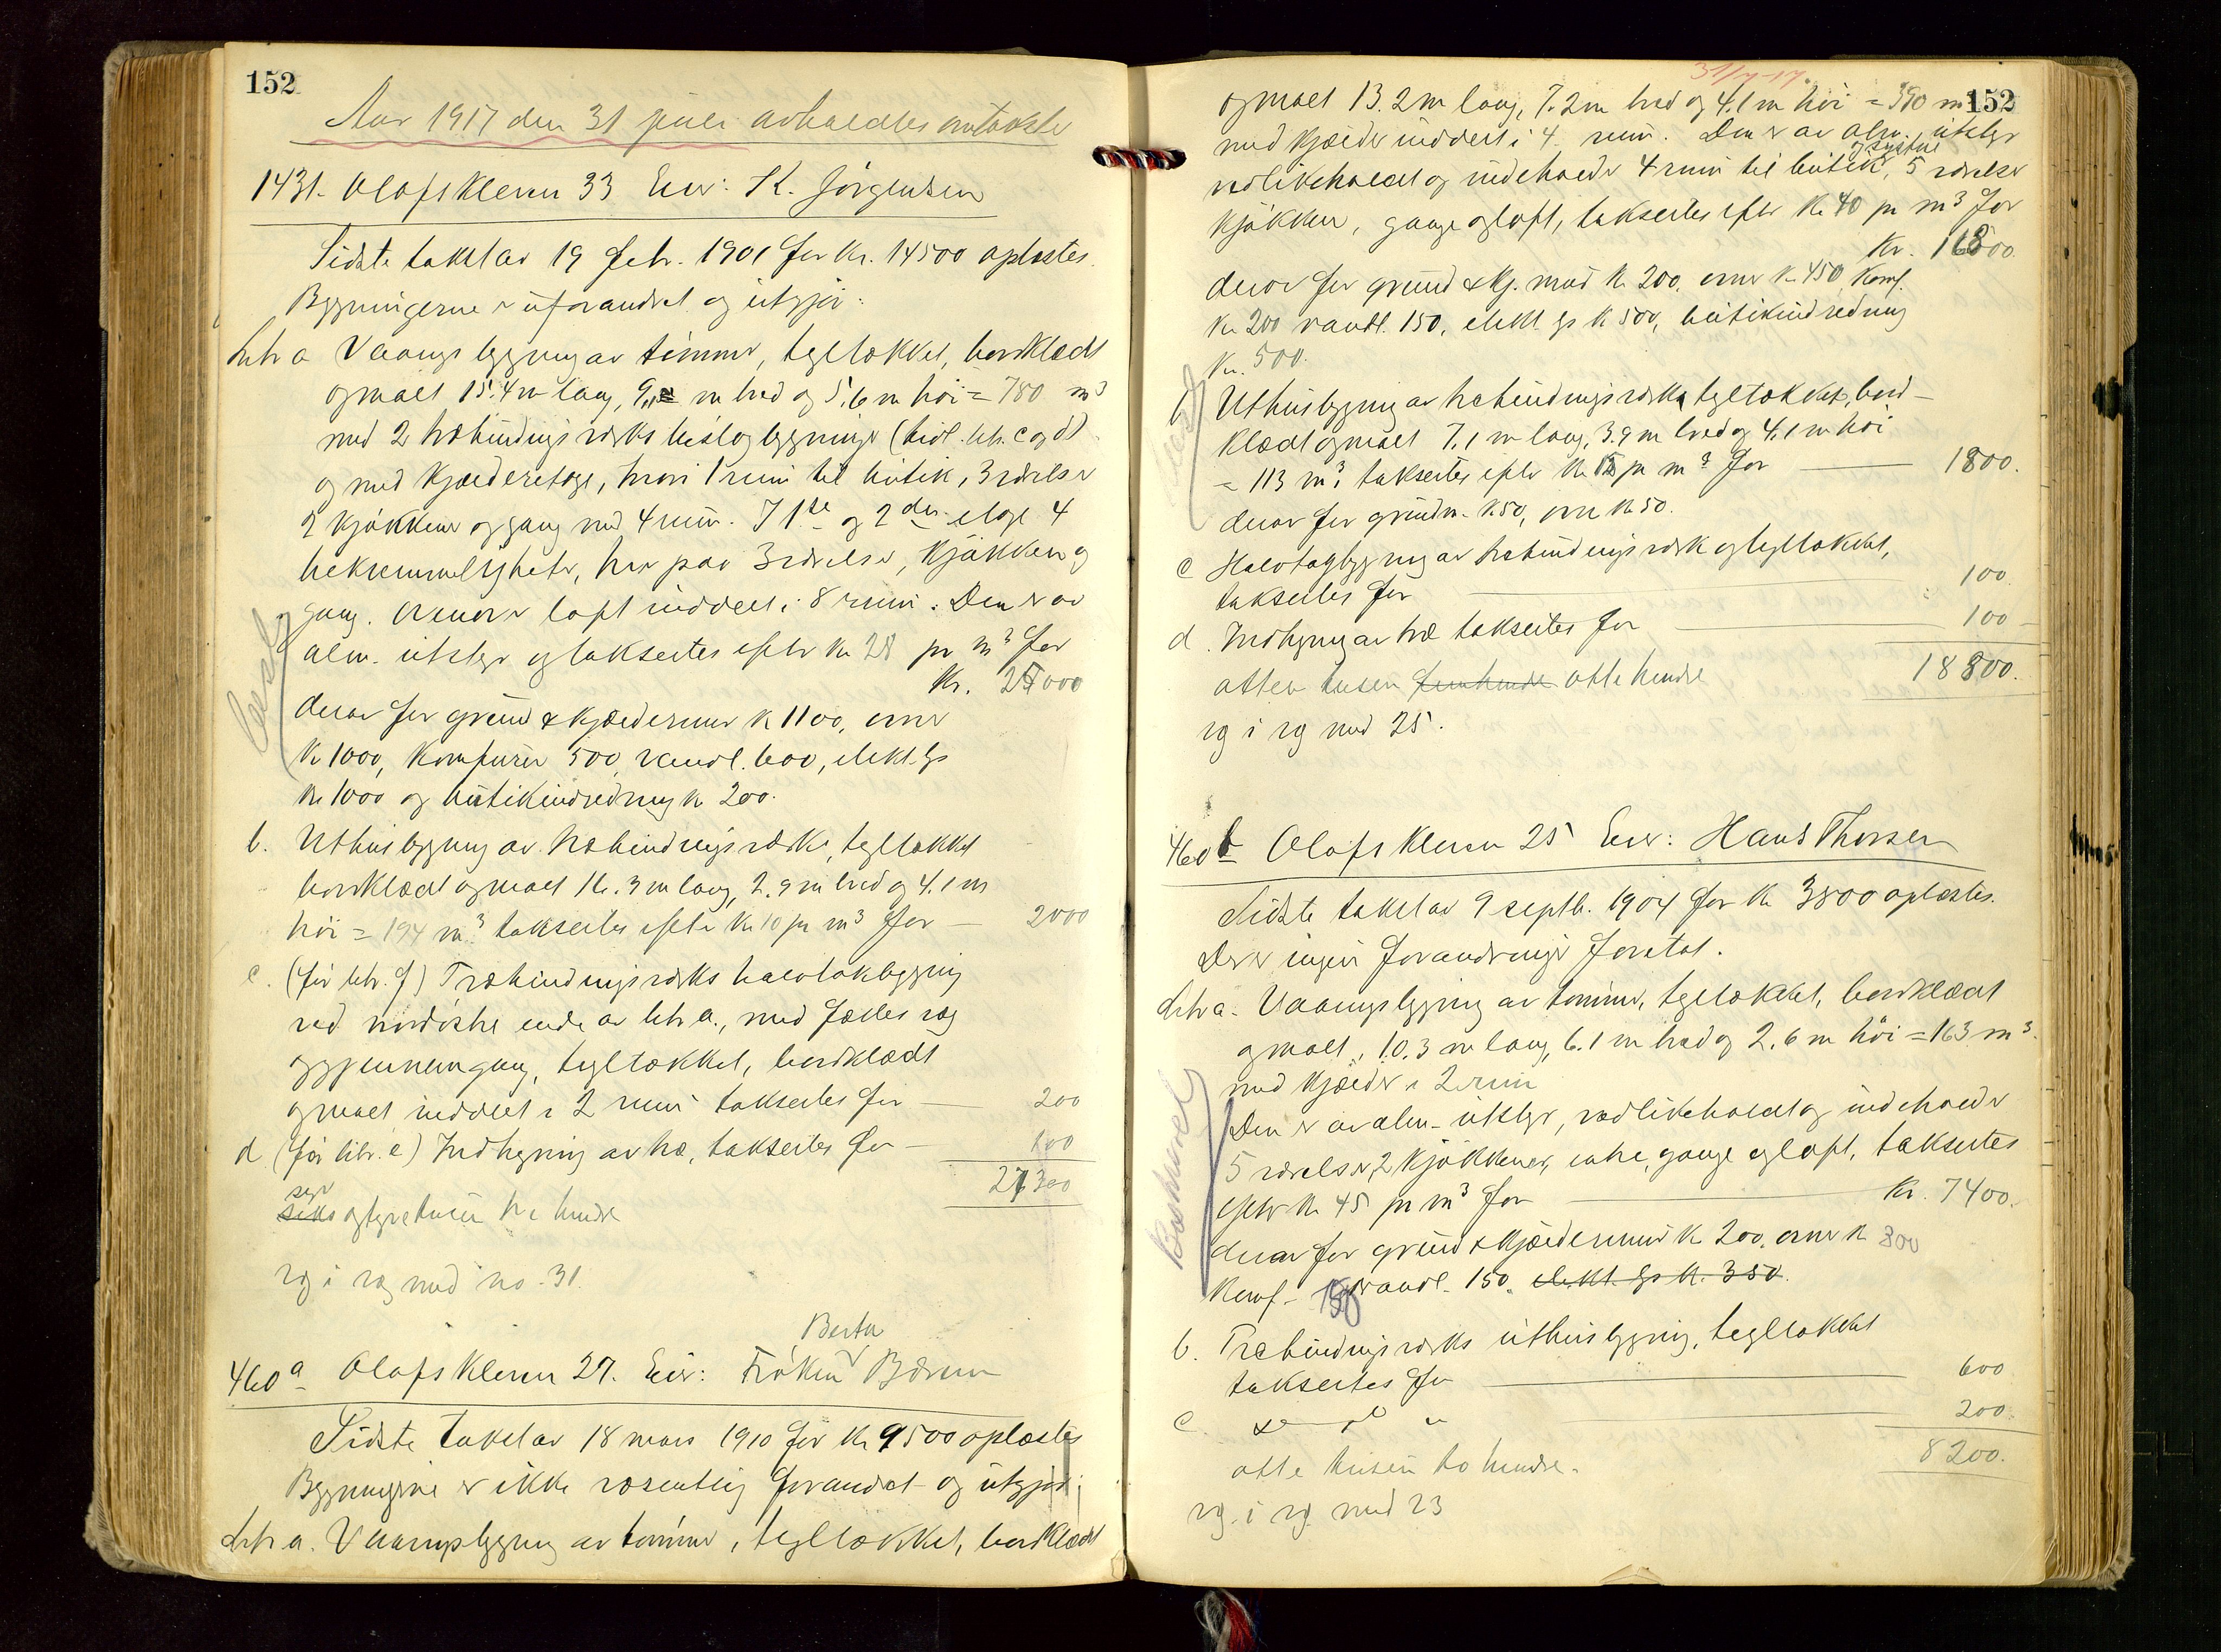 152
Aar 1917 den 31 juli avholdtes omtakster
1431. Olafskleven 33 Eier: K. Jörgensen
Sidste takst av 19 febr. 1901 for kr. 14500 oplæstes.
Bygningerne er uforandret og utgjör:
Litr a Vaaningsbygning av tömmer, tegltækket, bordklædt
og malt 15.4 m lang, 9,, m bred og 5,6 m höi = 780 m³
med 2 træbindingsverks bislagbygninger (tidl. litr. c og d)
og med kjælderetage, hvori 1 rum til butik, 3 værelser
2 kjøkkener og gang med 4 rum. I 1ste og 2den etage 4
bekvemmeligheter, hver paa 3 værelser, kjøkken og
gang. Ovenover loft inddelt i 8 rum. Den er av
alm. utstyr og takseres efter kr 28 pr m³ for
Kr. 25000
derav for grund & kjældermur kr 1100, ovner
kr 1000, komfurer 500, vandl. 600, elekt. lys
kr 1000 og butikindredning kr 200.
b. Uthusbygning av træbindingsverk, tegltækket
bordklædt og malt 16.3 m lang, 2.9 m bred og 4.1 m
höi = 194 m³ takseres efter kr 10 pr m³ for — 2000
c. (för litr. f) Træbindingsverks halvtakbygning
ved nordöstre ende av litr a., med fælles væg
og gjennemgang, tegltækket, bordklædt
og malt inddelt i 2 rum takseres for — 200
d (för litr. e) Indhegning av træ, takseres for — 100
27300
syv
seks og tyve tusen tre hundre
væg i væg med no. 31.
Berta
460a Olafskleven 27. Eier: Fröken Bærum
Sidste takst av 18 mars 1910 for kr 9500 oplæstes
Bygningerne er ikke væsentlig forandret og utgjör:
Litr a. Vaaningsbygning av tömmer, tegltækket, bordklædt
31/7-17.
152
og malt 13.2 m lang, 7.2 m bred og 4.1 m höi = 390 m³
med kjælder inddelt i 4 rum. Den er av alm. utstyr
og systue
vedlikeholdt og indeholder 4 rum til butik, 5 værelser
kjøkken, gange og loft, takseres efter kr 40 pr m³ for
Kr. 16800.
derav for grund & kj. mur kr 200, ovner kr 450, komf.
kr 200 vandl. 150, elekt. lys kr 500, butikindredning
kr. 500.
b Uthusbygning av træbindingsverk tegltækket, bord-
klædt og malt 7,1 m lang, 3.9 m bred og 4,1 m höi
= 113 m³ takseres efter kr 15 pr m³ for — 1800.
derav for grundm. kr 50, ovn kr 50.
c Halvtagbygning av træbindingsverk og tegltækket,
takseres for — 100.
d. Indhegning av træ takseres for — 100
18800.
atten tusen femhundre otte hundre
væg i væg med 25.
460b Olafskleven 25 Eier: Hans Thorsen
Sidste takst av 9 septb. 1904 for kr 3800 oplæstes.
Der er ingen forandringer foretat.
Litr a. Vaaningsbygning av tömmer, tegltækket, bordklædt
og malt, 10.3 m lang, 6.1 m bred og 2.6 m höi = 163 m³.
med kjælder i 2 rum
Den er av alm. utstyr, vedlikeholdt og indeholder
5 værelser, 2 kjøkkener, entre, gange og loft, takseres
efter kr 45 pr m³ for — Kr. 7400.
derav for grund & kjældermur kr 200, ovner kr 300
komf. 150 vandl. 150, elekt. lys kr. 350.
b. Træbindingsverks uthusbygning, tegltækket
takseres for — 600
c. — 200.
8200.
otte tusen to hundre.
væg i væg med 23